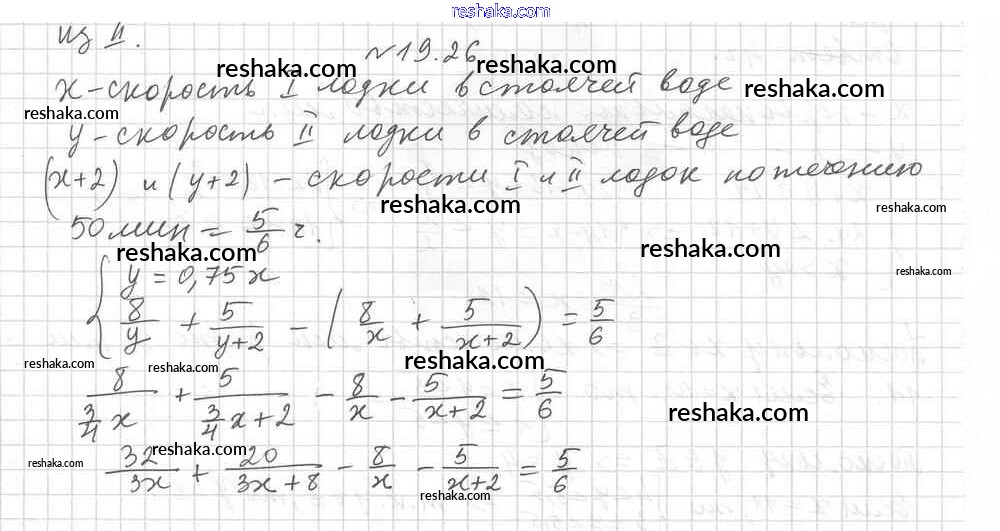 reshaka.com
из II.
№19.26
reshaka.com reshaka.com
x-скорость I лодки в стоячей воде reshaka.com
reshaka.com
y-скорость II лодки в стоячей воде
(x+2) и (y+2) - скорости I и II лодок по течению
reshaka.com reshaka.com
50 мин = 5/6 ч.
reshaka.com reshaka.com
{ y = 0,75x reshaka.com
8/y + 5/(y+2) - (8/x + 5/(x+2)) = 5/6
reshaka.com reshaka.com reshaka.com
8/(3/4 x) + 5/(3/4 x+2) - 8/x - 5/(x+2) = 5/6 reshaka.com
reshaka.com
reshaka.com 32/3x + 20/(3x+8) - 8/x - 5/(x+2) = 5/6
reshaka.com